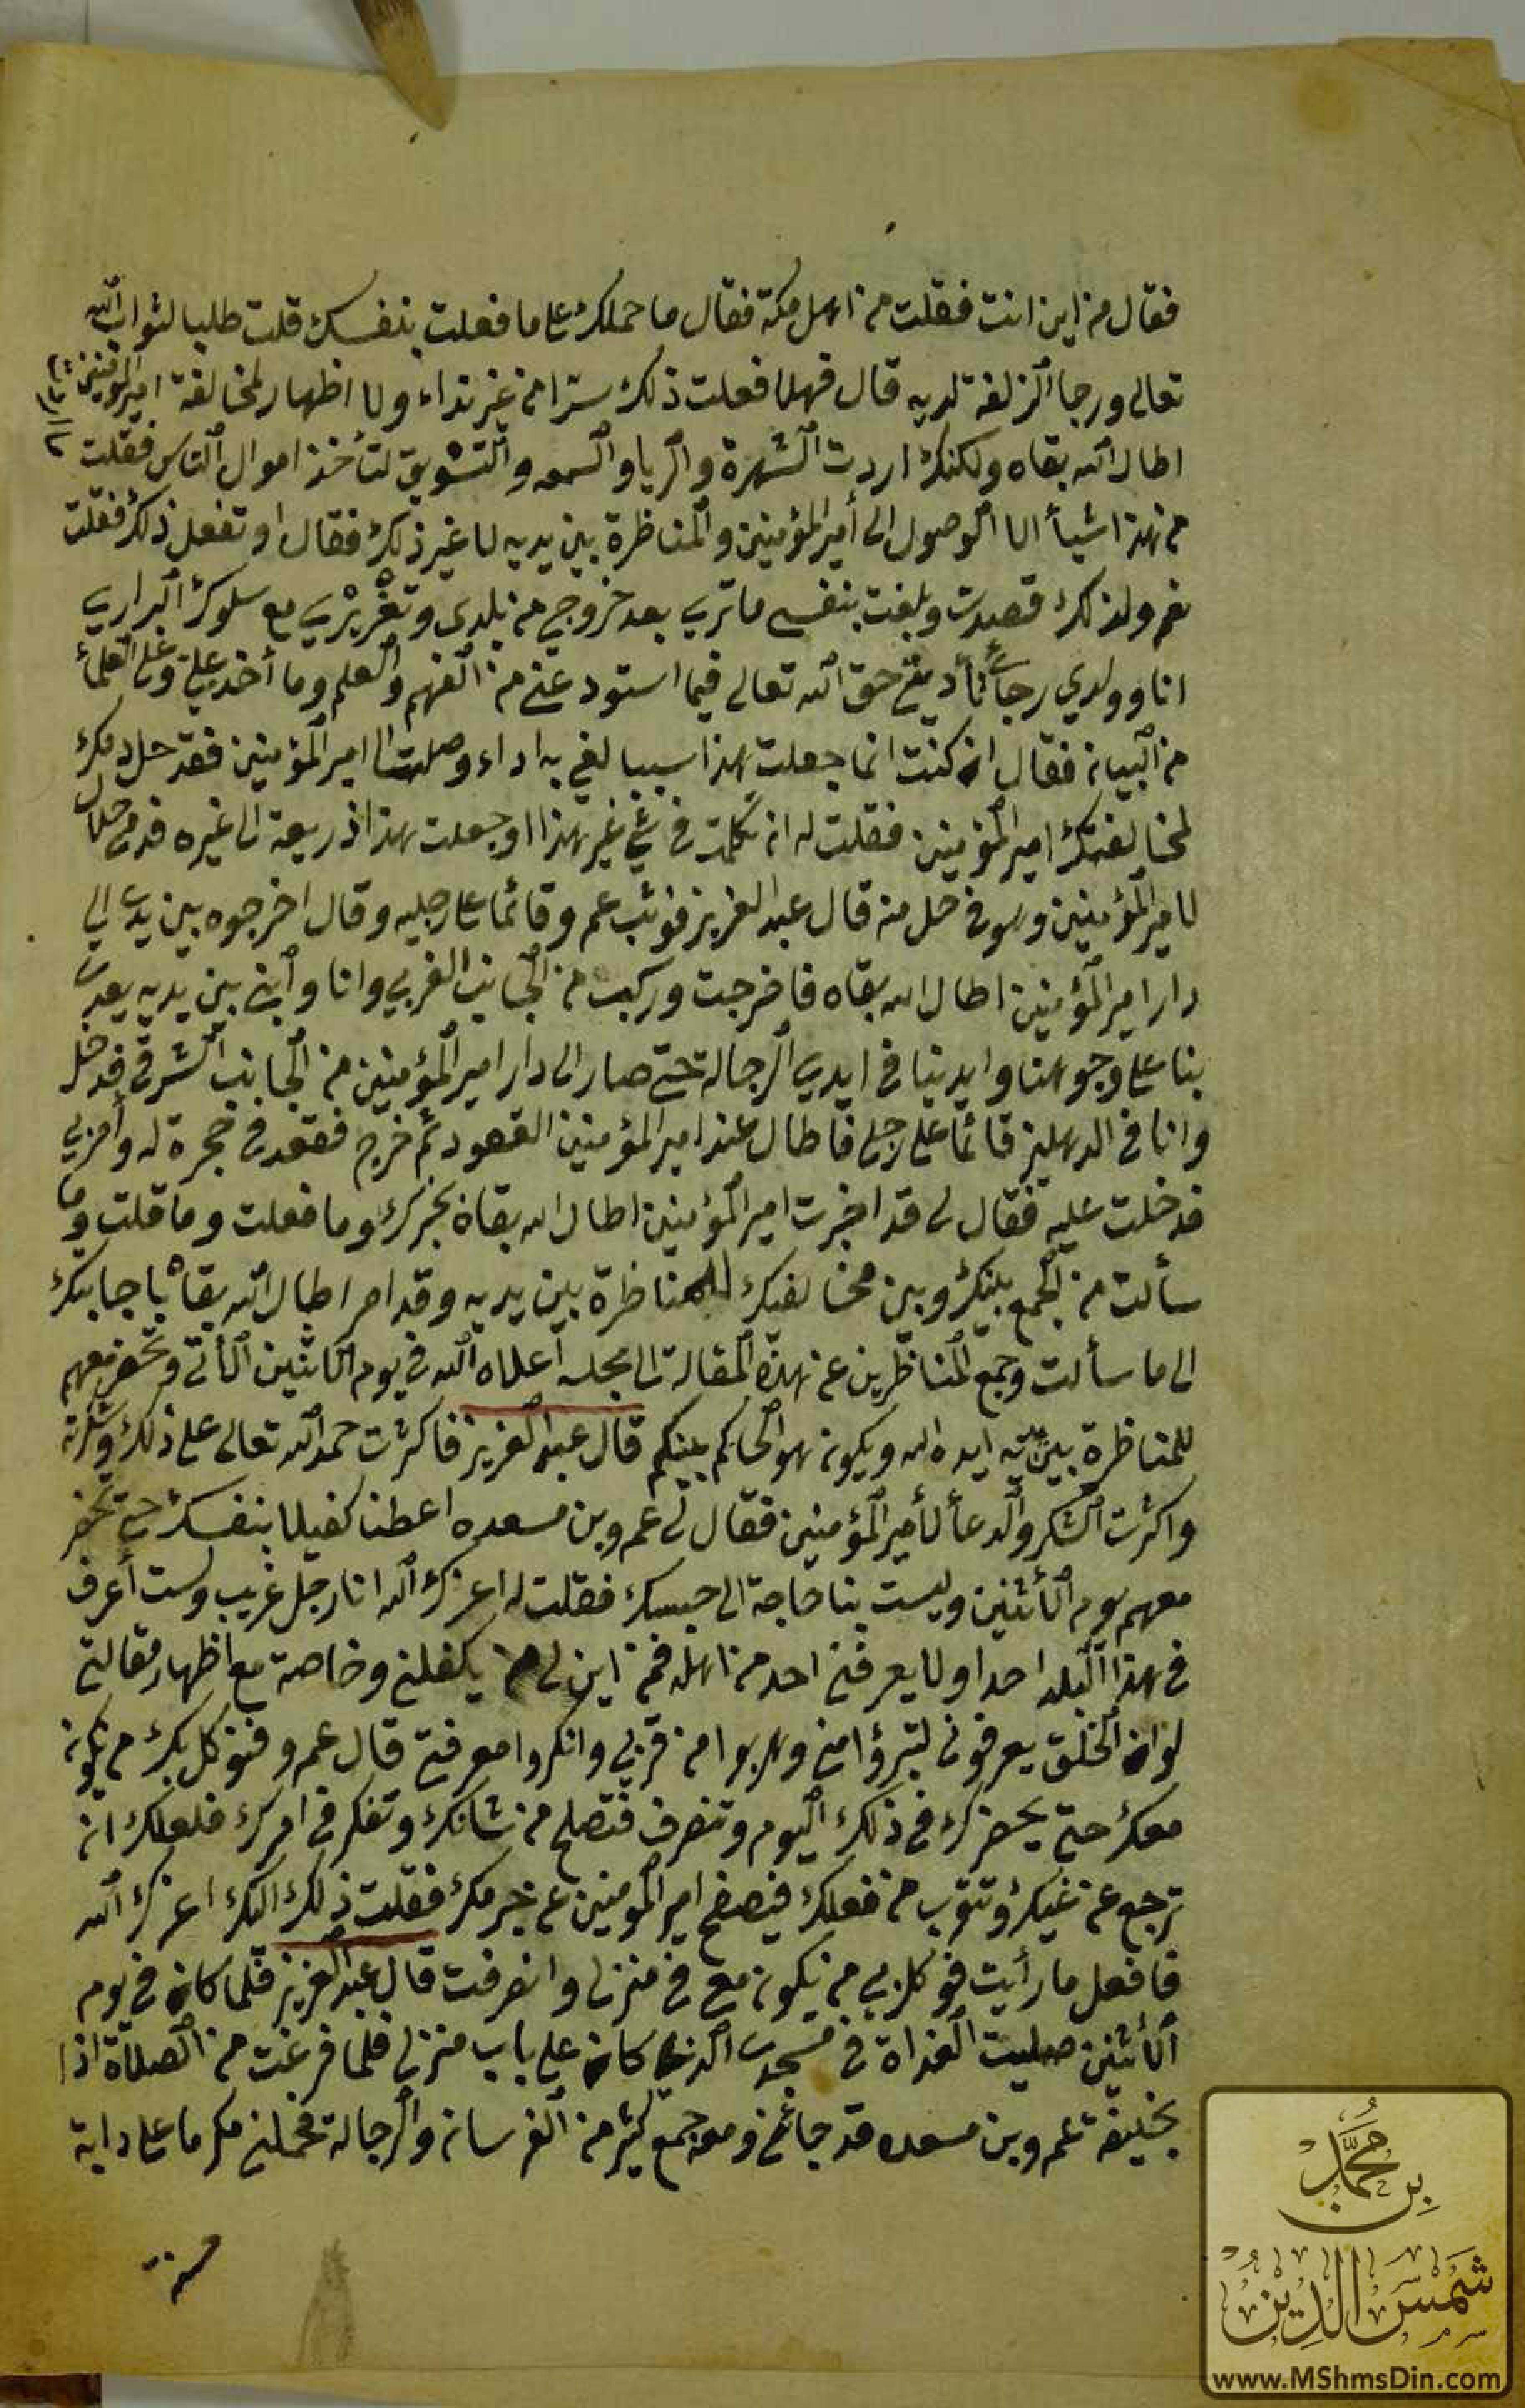 فقال من اين انت فقلت من اهل مكة فقال ما حملك على ما فعلت بنفسك قلت طلبا لثواب الله
تعالى ورجا الزلفة لديه قال فهلا فعلت ذلك سترا من غير نداء ولا اظهار لمخالفة امير المؤمنين
اطال الله بقاه ولكنك اردت الشهرة والريا والسمعه والتشويق لتأخذ اموال الناس فقلت
من هذا شيأ الا الوصول الى أمير المؤمنين والمناظرة بين يديه لا غير ذلك فقال او تفعل ذلك فقلت
نعم ولذلك قصدت وبلغت بنفسي ما ترى بعد خروجي من بلدي وتغريري مع سلوك البراري
انا وولدي رجاء تأديتي حق الله تعالى فيما استودعني من الفهم والعلم وما أخذ علي وعلى العلماء
من البيان فقال ان كنت انما جعلت هذا سببا لغيره اذا وصلت الى امير المؤمنين فقد حل دمك
لمخالفتك امير المؤمنين فقلت له ان تكلمت في شي غير هذا او جعلت هذا ذريعة الى غيره فدمي حلال
لامير المؤمنين وهو في حل منه قال عبد العزيز فوثب عمرو قائما على رجليه وقال اخرجوه بين يدي الى
دار امير المؤمنين اطال الله بقاه فاخرجت وركب من الجانب الغربي وانا وابني بين يديه يعدى
بنا على وجوهنا وايدينا في ايدي الرجالة حتى صار الى دار امير المؤمنين من الجانب الشرقي فدخل
وانا في الدهليز قائما على رجلي فاطال عند امير المؤمنين القعود ثم خرج فقعد في حجرة له وأمر بي
فدخلت عليه فقال لي قد اخبرت امير المؤمنين اطال الله بقاه بخبرك وما فعلت وما قلت وما
سألت من الجمع بينك وبين مخالفيك للمناظرة بين يديه وقد امر اطال الله بقاه باجابتك
الى ما سألت وجمع المناظرين عن هذه المقالة الى مجلسه أعلاه الله في يوم الاثنين الأتي وتحضر معهم
للمناظرة بين يديه ايده الله ويكون هو الحاكم بينكم قال عبد العزيز فاكثرت حمد الله تعالى على ذلك وشكرته
واكثرت الشكر والدعأ لأمير المؤمنين فقال لي عمرو بن مسعده اعطنا كفيلا بنفسك حتى تحضر
معهم يوم الأثنين وليست بنا حاجة الى حبسك فقلت له اعزك الله انا رجل غريب ولست أعرف
في هذا البلد احدا ولا يعرفني احد من اهله فمن اين لي من يكفلني وخاصة مع اظهار مقالتي
لو ان الخلق يعرفوني لتبرؤا مني وهربوا من قربي وانكروا معرفتي قال عمرو فنوكل بك من يكون
معك حتى يحضرك في ذلك اليوم وتنصرف فتصلح من شانك وتفكر في امرك فلعلك ان
ترجع عن غيك وتتوب من فعلك فيصفح امير المؤمنين عن جرمك فقلت ذلك اليك اعزك الله
فافعل ما رأيت فوكل بي من يكون معي في منزلي وانصرفت قال عبد العزيز فلما كان في يوم
الأثنين صليت الغداة في مسجدى الذي كان على باب منزلي فلما فرغت من الصلاة اذا
بخليفة عمرو بن مسعده قد جائني ومعه جمع كثير من الفرسان والرجالة فحملني مكرما على دابة
محمد بن
شمس الدين
www.MShmsDin.com